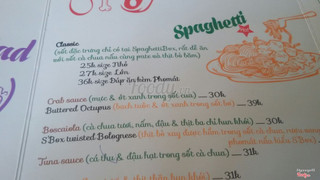 Spaghetti
Classic
(sốt đặc trưng chỉ có tại SpaghettiBox, rất dễ ăn
sốt cà chua nấu cùng mực và thịt bò băm)
25k size Nhỏ
27k size Lớn
36k size Đáp ăn kèm Phomát
foody
Crab sauce (mực & ớt xanh trong sốt cua) — 30k
Buttered Octopus (bạch tuộc & ớt xanh trong sốt bơ) — 39k
Boscaiola (cà chua tươi, nấm, đậu & thịt ba chỉ hun khói) — 30k
SBox twisted Bolognese (thịt bò xay được hầm trong sốt cà chua, rượu
phomát nấu kiểu SBox)
Tuna sauce (cá thu & đậu hạt trong sốt cà chua) — 31k
— 31k